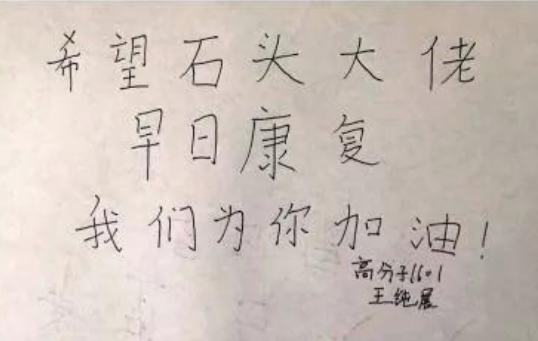 希望石头大佬
早日康复
我们为你加油!
高分子1601
王纯展